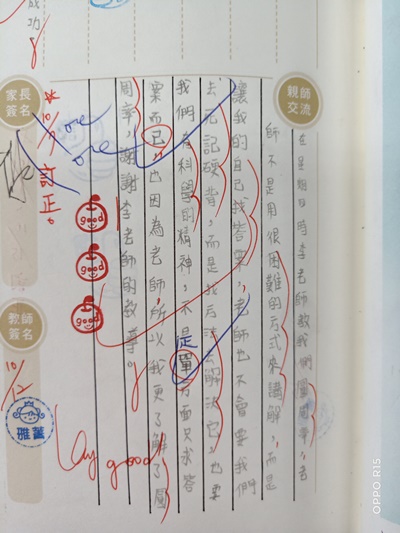 成功
親師交流
在星期日時李老師教我們圓周率，老
師不是用很困難的方式來講解，而是
讓我的自己找答案，老師也不會要我們
去死記硬背，而是找方法去解決它，也要
我們有科學的精神，不是從單方面只求答
案而已，也因為老師，所以我更了解了圓
周率，謝謝李老師的教導。
家長簽名
10/9
訂正。
good
good
good
Very good
教師簽名
10/12
雅菁
OPPO R15